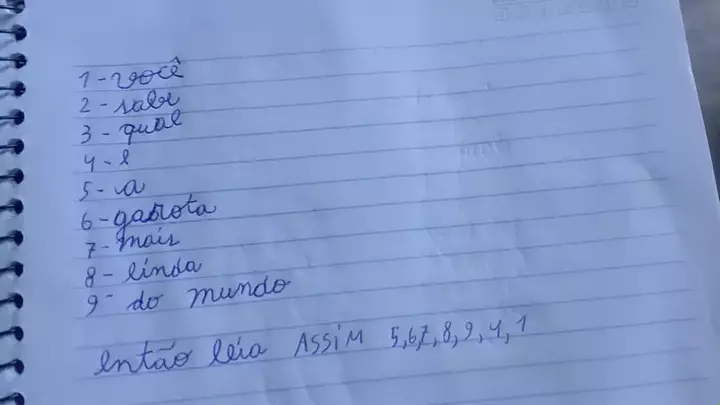 1 - você
2 - sabe
3 - qual
4 - e
5 - a
6 - garota
7 - mais
8 - linda
9 - do mundo
então leia ASSIM 5,6,7,8,9,4,1